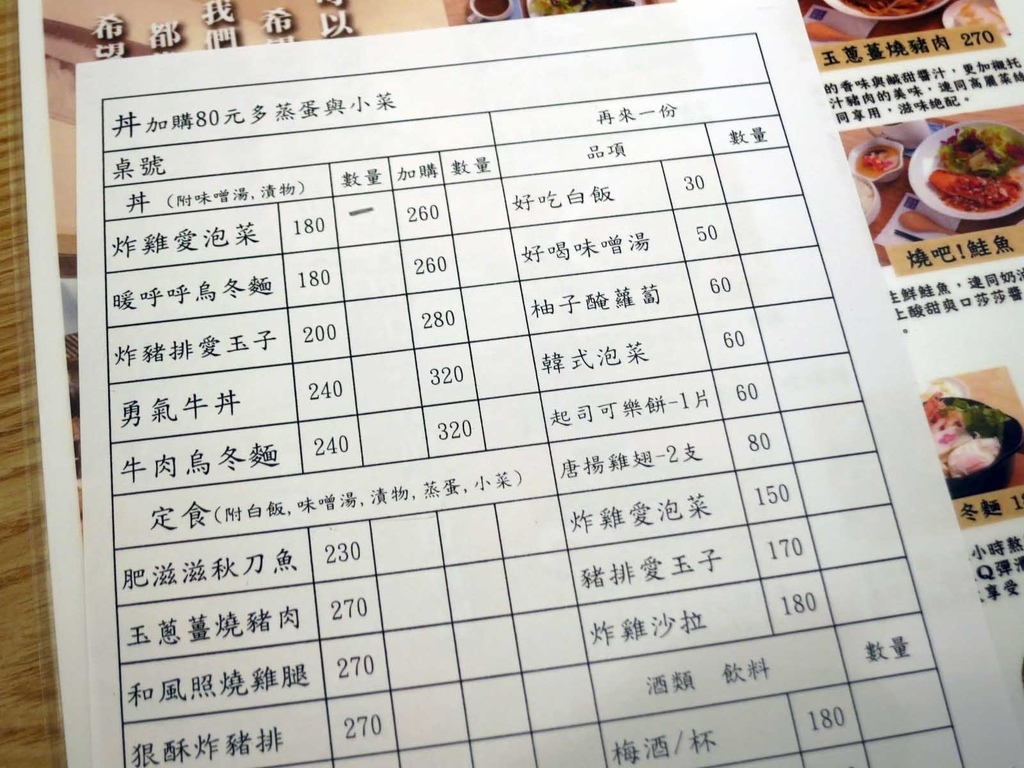 希望
都
我們
希望
以
丼加購80元多蒸蛋與小菜
桌號
丼 (附味噌湯,漬物) 數量 加購 數量
炸雞愛泡菜 180 一 260
暖呼呼烏冬麵 180 260
炸豬排愛玉子 200 280
勇氣牛丼 240 320
牛肉烏冬麵 240 320
定食(附白飯,味噌湯,漬物,蒸蛋,小菜)
肥滋滋秋刀魚 230
玉蔥薑燒豬肉 270
和風照燒雞腿 270
狠酥炸豬排 270
再來一份
品項 數量
好吃白飯 30
好喝味噌湯 50
柚子醃蘿蔔 60
韓式泡菜 60
起司可樂餅-1片 60
唐揚雞翅-2支 80
炸雞愛泡菜 150
豬排愛玉子 170
炸雞沙拉 180
酒類 飲料 數量
梅酒/杯 180
玉蔥薑燒豬肉 270
的香味與鹹甜醬汁,更加襯托
汁豬肉的美味,連同高麗菜絲
同享用,滋味絕配。
燒吧!鮭魚
生鮮鮭魚,連同奶油
上酸甜爽口莎莎醬
。
冬麵 1
小時熬
Q彈滑
享受